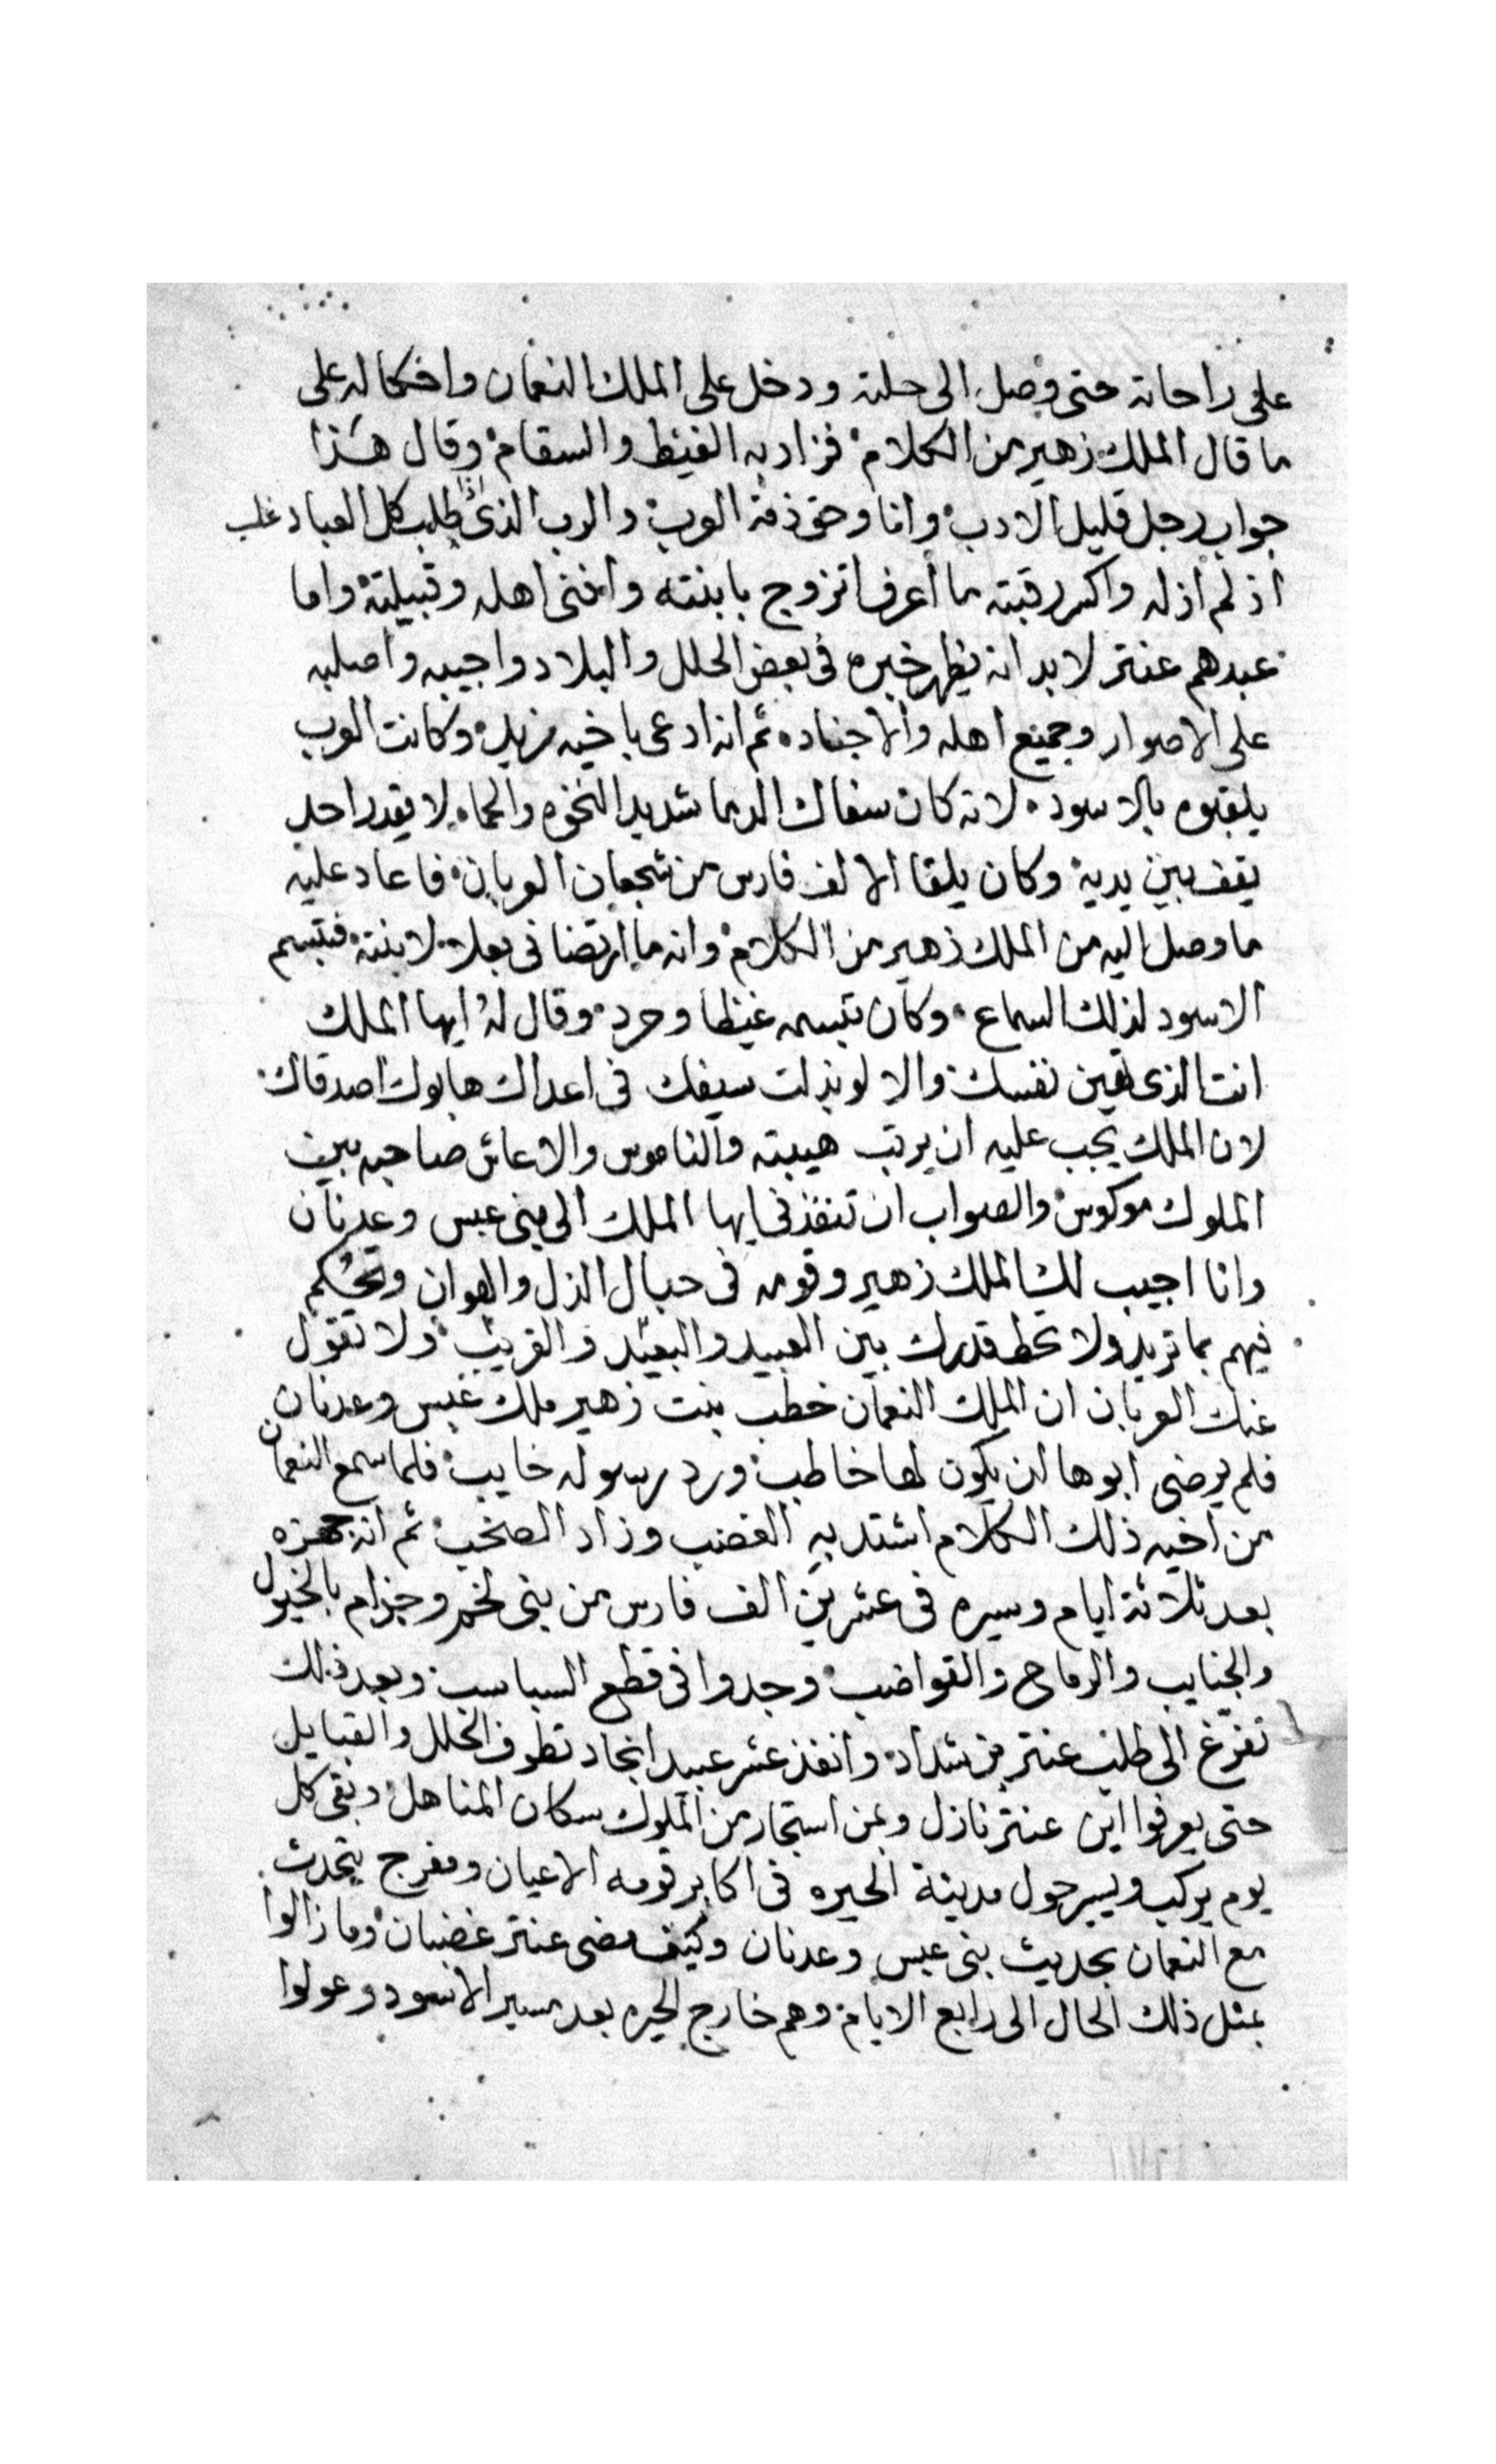 على راحاته حتى وصل الى حلته ودخل على الملك النعمان واحكا له على
ما قال الملك زهير من الكلام فزاد به الغيظ والسقام وقال هذا
جواب رجل قليل الادب وانا وحق ذمة العرب والرب الذى اذا طلب كل العباد غلب
اذ لم اذله واكسر رقبته ما أعرف اتزوج بابنته وافنى اهله وقبيلته واما
عبدهم عنتر لا بد انه يظهر خبره فى بعض الحلل والبلاد واجيبه واصلبه
على الاصوار وجميع اهله والاجناد ثم انه ادعى باخيه مزيد وكانت العرب
يلقبوه بالاسود لانه كان سفاك الدما شديد النخوه والحماه لا يقدر احد
يقف بين يديه وكان يلقا الالف فارس من شجعان العربان فاعاد عليه
ما وصل اليه من الملك زهير من الكلام وانه ما ارتضا فى بعلا لابنته فتبسم
الاسود لذلك السماع وكان تبسمه غيظا وحرد وقال له ايها الملك
انت الذى تهين نفسك والا لو بذلت سيفك فى اعداك هابوك اصدقاك
لان الملك يجب عليه ان يرتب هيبته والناموس والا عاش صاحبه بين
الملوك موكوس والصواب ان تنفذنى ايها الملك الى بنى عبس وعدنان
وانا اجيب لك الملك زهير وقومه فى حبال الذل والهوان وتحكم
فيهم بما تريد ولا تحط قدرك بين العبيد والبعيد والقريب ولا تقول
عنك العربان ان الملك النعمان خطب بنت زهير ملك عبس وعدنان
فلم يرضى ابوها ان يكون لها خاطب ورد رسوله خايب فلما سمع النعمان
من اخيه ذلك الكلام اشتد به الغضب وزاد الصخب ثم انه جهزه
بعد ثلاثة ايام وسيره فى عشرين الف فارس من بنى لخم وجزام بالخيول
والجنايب والرماح والقواضب وجدوا فى قطع السباسب وبعد ذلك
تفرغ الى طلب عنتر بن شداد وانفذ عشر عبيد انجاد تطوف الحلل والقبايل
حتى يعرفوا اين عنتر نازل وبمن استجار من الملوك سكان المناهل وبقى كل
يوم يركب ويسير حول مدينة الحيره فى اكابر قومه الاعيان ومفرج يتحدث
مع النعمان بحديث بنى عبس وعدنان وكيف مضى عنتر غضبان وما زالوا
بمثل ذلك الحال الى رابع الايام وهم خارج الحيره بعد مسير الاسود وعولوا